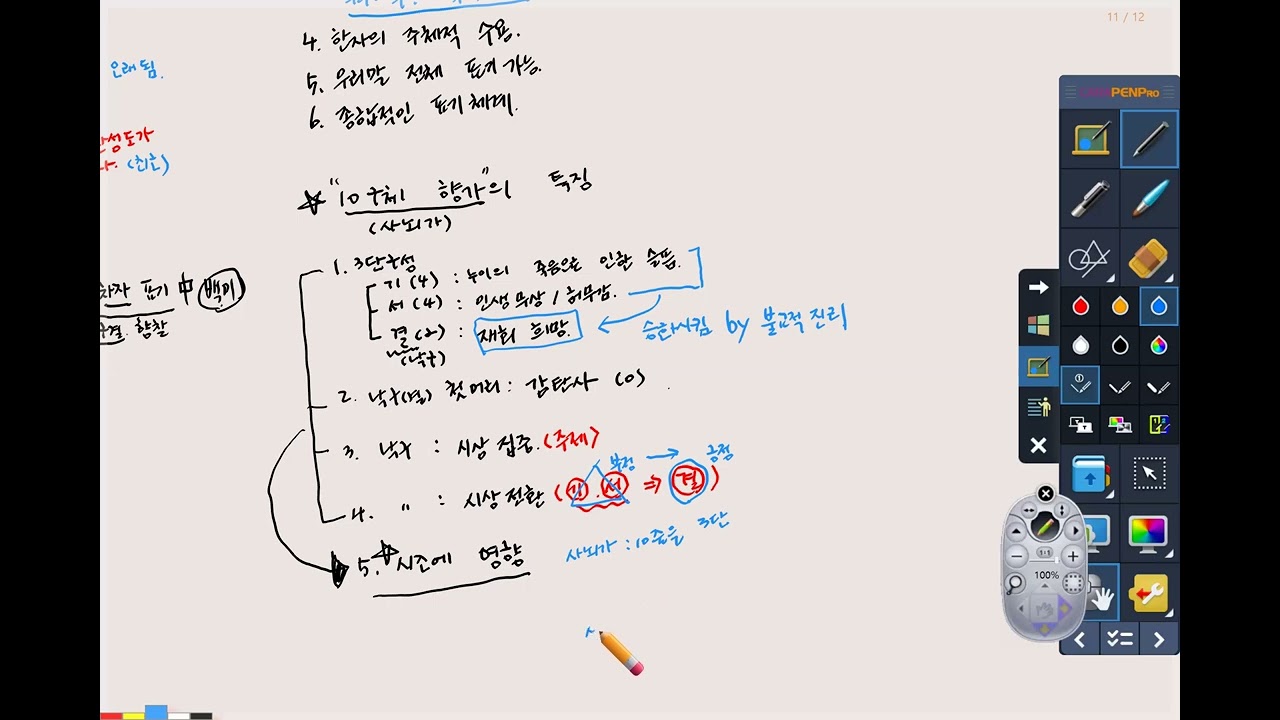 11 / 12
4. 한자의 주체적 수용.
5. 우리말 전체 표기 가능.
6. 종합적인 표기 체계.
오래됨.
완성도가
다. (최초)
☆ "10구체 향가"의 특징
(사뇌가)
차자 표기 中 백미
구결. 향찰
1. 3단구성
기 (4) : 누이의 죽음으로 인한 슬픔.
서 (4) : 인생무상 / 허무감.
결 (2) : 재회 희망.
(낙구)
승화시킴 by 불교적 진리
2. 낙구(결) 첫머리 : 감탄사 (O)
3. 낙구 : 시상 집중. (주제)
부정 → 긍정
4. " : 시상 전환 (기.서 ⇒ 결)
5. ☆시조에 영향
사뇌가 : 10줄을 3단
PENPRO
100%